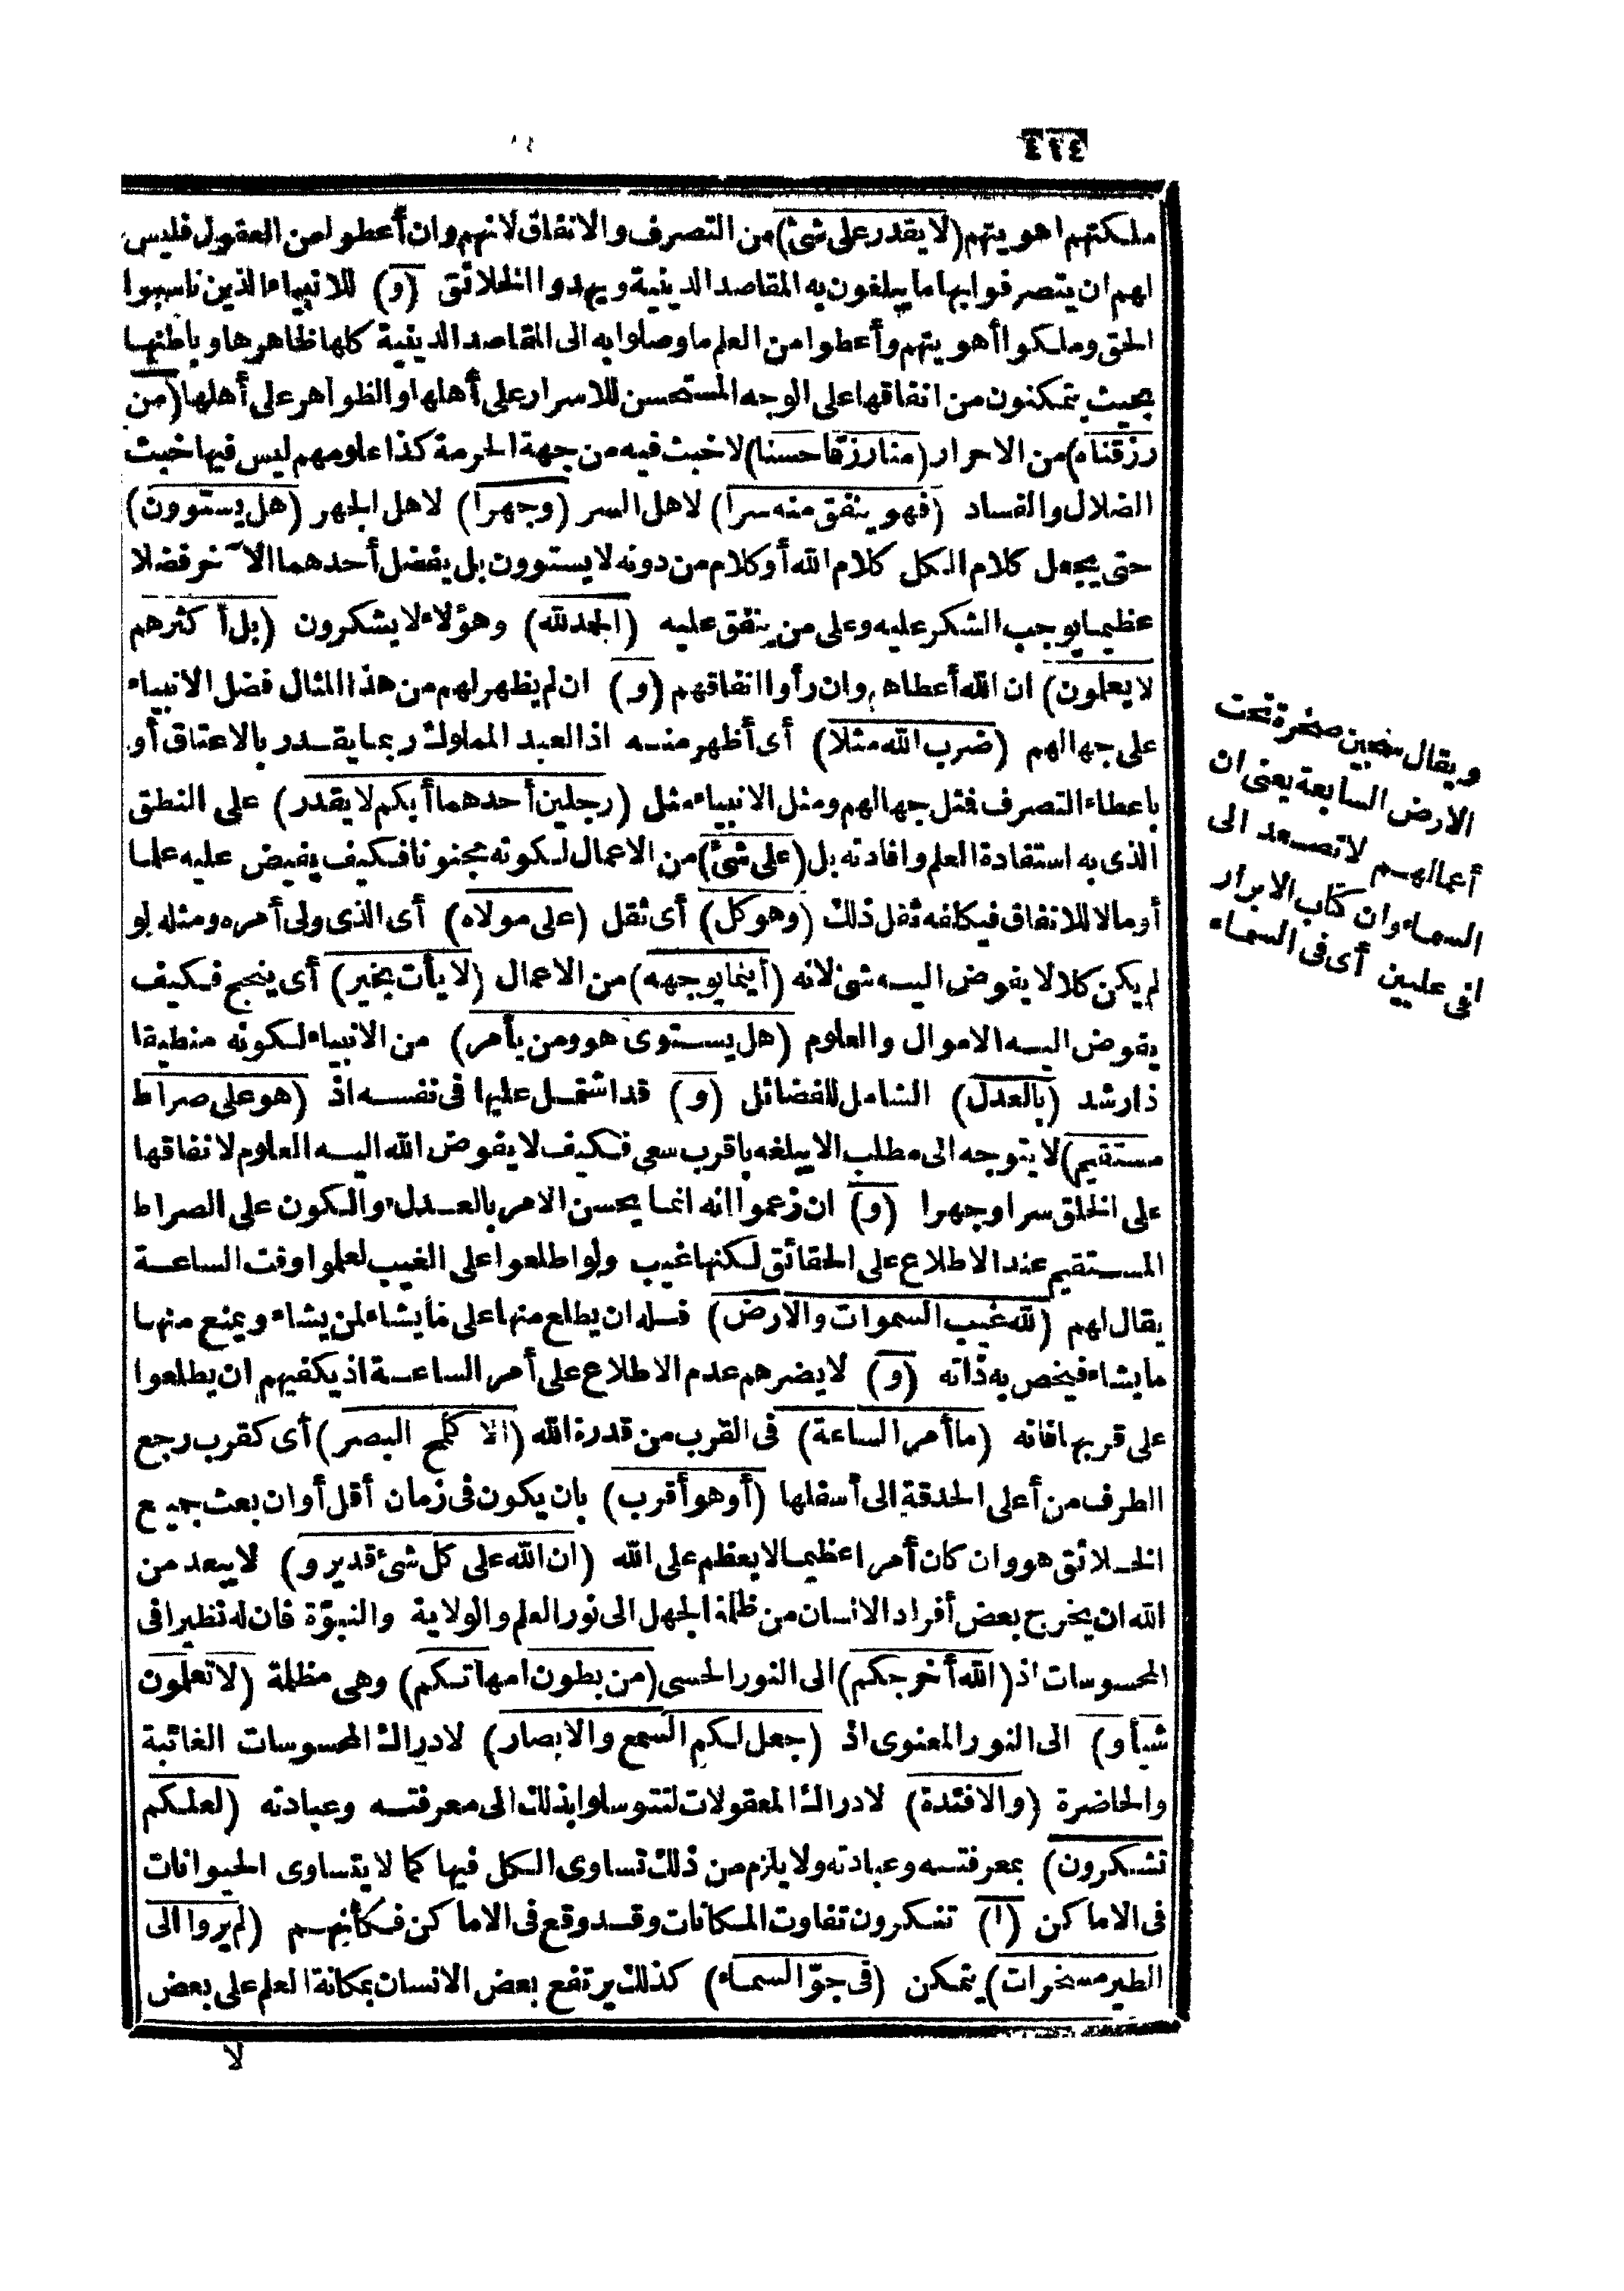 ٤١٤
ملكتهم اهويتهم (لا يقدر على شئ) من التصرف والانفاق لانهم وان أعطوا من العقول فليس
لهم ان يتصرفوا بها ما يبلغون به المقاصد الدينية ويهدوا الخلائق (و) للانبياء الذين ناسبوا
الحق وملكوا أهويتهم وأعطوا من العلم ما وصلوا به الى المقاصد الدينية كلها ظاهرها وباطنها
بحيث يتمكنون من انفاقها على الوجه المستحسن للاسرار على أهلها والظواهر على أهلها (من
رزقناه) من الاحرار (منا رزقا حسنا) لا خبث فيه من جهة الحرمة كذا علومهم ليس فيها خبث
الضلال والفساد (فهو ينفق منه سرا) لاهل السر (وجهرا) لاهل الجهر (هل يستوون)
حتى يجعل كلام الكل كلام الله أو كلام من دونه لا يستوون بل يفضل أحدهما الآخر فضلا
عظيما يوجب الشكر عليه وعلى من ينفق عليه (الحمد لله) وهؤلاء لا يشكرون (بل أكثرهم
لا يعلمون) ان الله أعطاهم وان رأوا انفاقهم (و) ان لم يظهر لهم من هذا المثال فضل الانبياء
على جهالهم (ضرب الله مثلا) أى أظهر منه اذ العبد المملوك ربما يقدر بالاعتاق أو
باعطاء التصرف فمثل جهالهم ومثل الانبياء مثل (رجلين أحدهما أبكم لا يقدر) على النطق
الذى به استفادة العلم وافادته بل (على شئ) من الاعمال لكونه مجنونا فكيف يفيض عليه علما
أو مالا للانفاق فيكلفه ثقل ذلك (وهو كل) أى ثقل (على مولاه) أى الذى ولى أمره ومثله لو
لم يكن كلا لا يفوض اليه شئ لانه (أينما يوجهه) من الاعمال (لا يأت بخير) أى ينجح فكيف
يفوض اليه الاموال والعلوم (هل يستوى هو ومن يأمر) من الانبياء لكونه منطيقا
ذا رشد (بالعدل) الشامل للفضائل (و) قد اشتمل عليها فى نفسه اذ (هو على صراط
مستقيم) لا يتوجه الى مطلب الا يبلغه باقرب سعى فكيف لا يفوض الله اليه العلوم لانفاقها
على الخلق سرا وجهرا (و) ان زعموا انه انما يحسن الامر بالعدل والكون على الصراط
المستقيم عند الاطلاع على الحقائق لكنها غيب ولو اطلعوا على الغيب لعلموا وقت الساعة
يقال لهم (لله غيب السموات والارض) فله ان يطلع منها على ما يشاء لمن يشاء ويمنع منها
ما يشاء فيخص به ذاته (و) لا يضرهم عدم الاطلاع على أمر الساعة اذ يكفيهم ان يطلعوا
على قربها فانه (ما أمر الساعة) فى القرب من قدرة الله (الا كلمح البصر) أى كقرب رجع
الطرف من أعلى الحدقة الى أسفلها (أو هو أقرب) بان يكون فى زمان أقل أو ان بعث جميع
الخلائق هو وان كان أمرا عظيما لا يعظم على الله (ان الله على كل شئ قدير و) لا يبعد من
الله ان يخرج بعض أفراد الانسان من ظلمة الجهل الى نور العلم والولاية والنبوّة فان له نظيرا فى
المحسوسات اذ (الله أخرجكم) الى النور الحسى (من بطون امهاتكم) وهى مظلمة (لا تعلمون
شيأ و) الى النور المعنوى اذ (جعل لكم السمع والابصار) لادراك المحسوسات الغائبة
والحاضرة (والافئدة) لادراك المعقولات لتتوسلوا بذلك الى معرفته وعبادته (لعلكم
تشكرون) بمعرفته وعبادته ولا يلزم من ذلك تساوى الكل فيها كما لا يتساوى الحيوانات
فى الاماكن (ا) تنكرون تفاوت المكانات وقد وقع فى الاماكن فكأنهم (لم يروا الى
الطير مسخرات) يتمكن (فى جوّ السماء) كذلك يرتفع بعض الانسان بمكانة العلم على بعض
لا
ويقال سجين صخرة تحت
الارض السابعة يعنى ان
أعمالهم لا تصعد الى
السماء وان كتاب الابرار
لفى عليين أى فى السماء